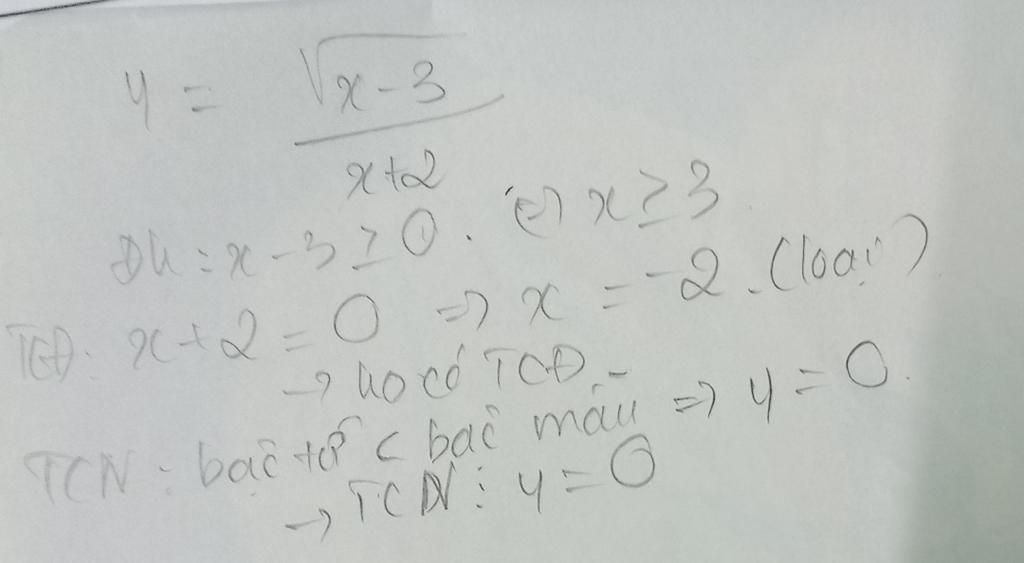 y = √(x-3) / (x+2)
Đk: x-3 ≥ 0. ⇔ x ≥ 3
TCĐ: x+2 = 0 ⇒ x = -2. (loại)
→ ko có TCĐ.
TCN: bậc tử < bậc mẫu ⇒ y = 0.
→ TCN: y = 0